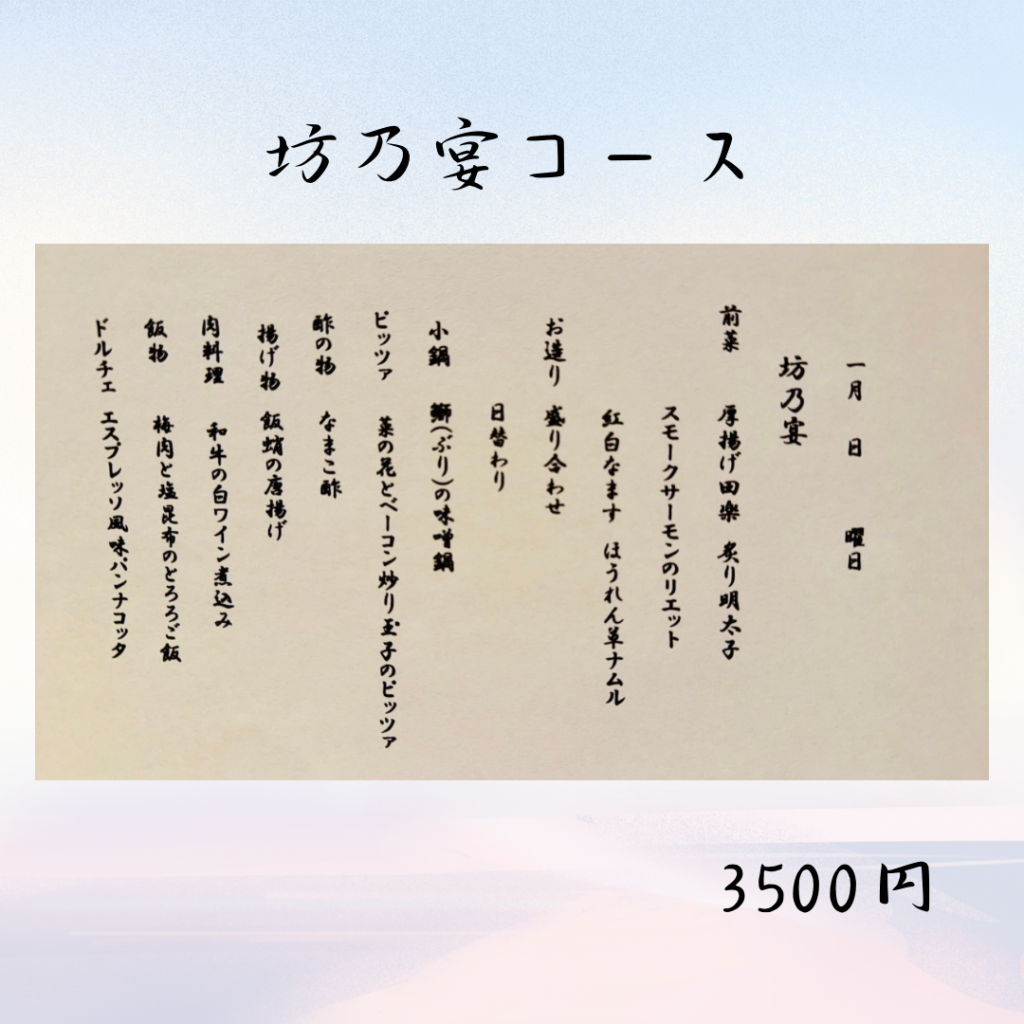 坊乃宴コース
一月　日　曜日
坊乃宴
前菜　厚揚げ田楽　炙り明太子
スモークサーモンのリエット
紅白なます　ほうれん草ナムル
お造り　盛り合わせ
日替わり
小鍋　鰤(ぶり)の味噌鍋
ピッツァ　菜の花とベーコン炒り玉子のピッツァ
酢の物　なまこ酢
揚げ物　飯蛸の唐揚げ
肉料理　和牛の白ワイン煮込み
飯物　梅肉と塩昆布のとろろご飯
ドルチェ　エスプレッソ風味パンナコッタ
3500円